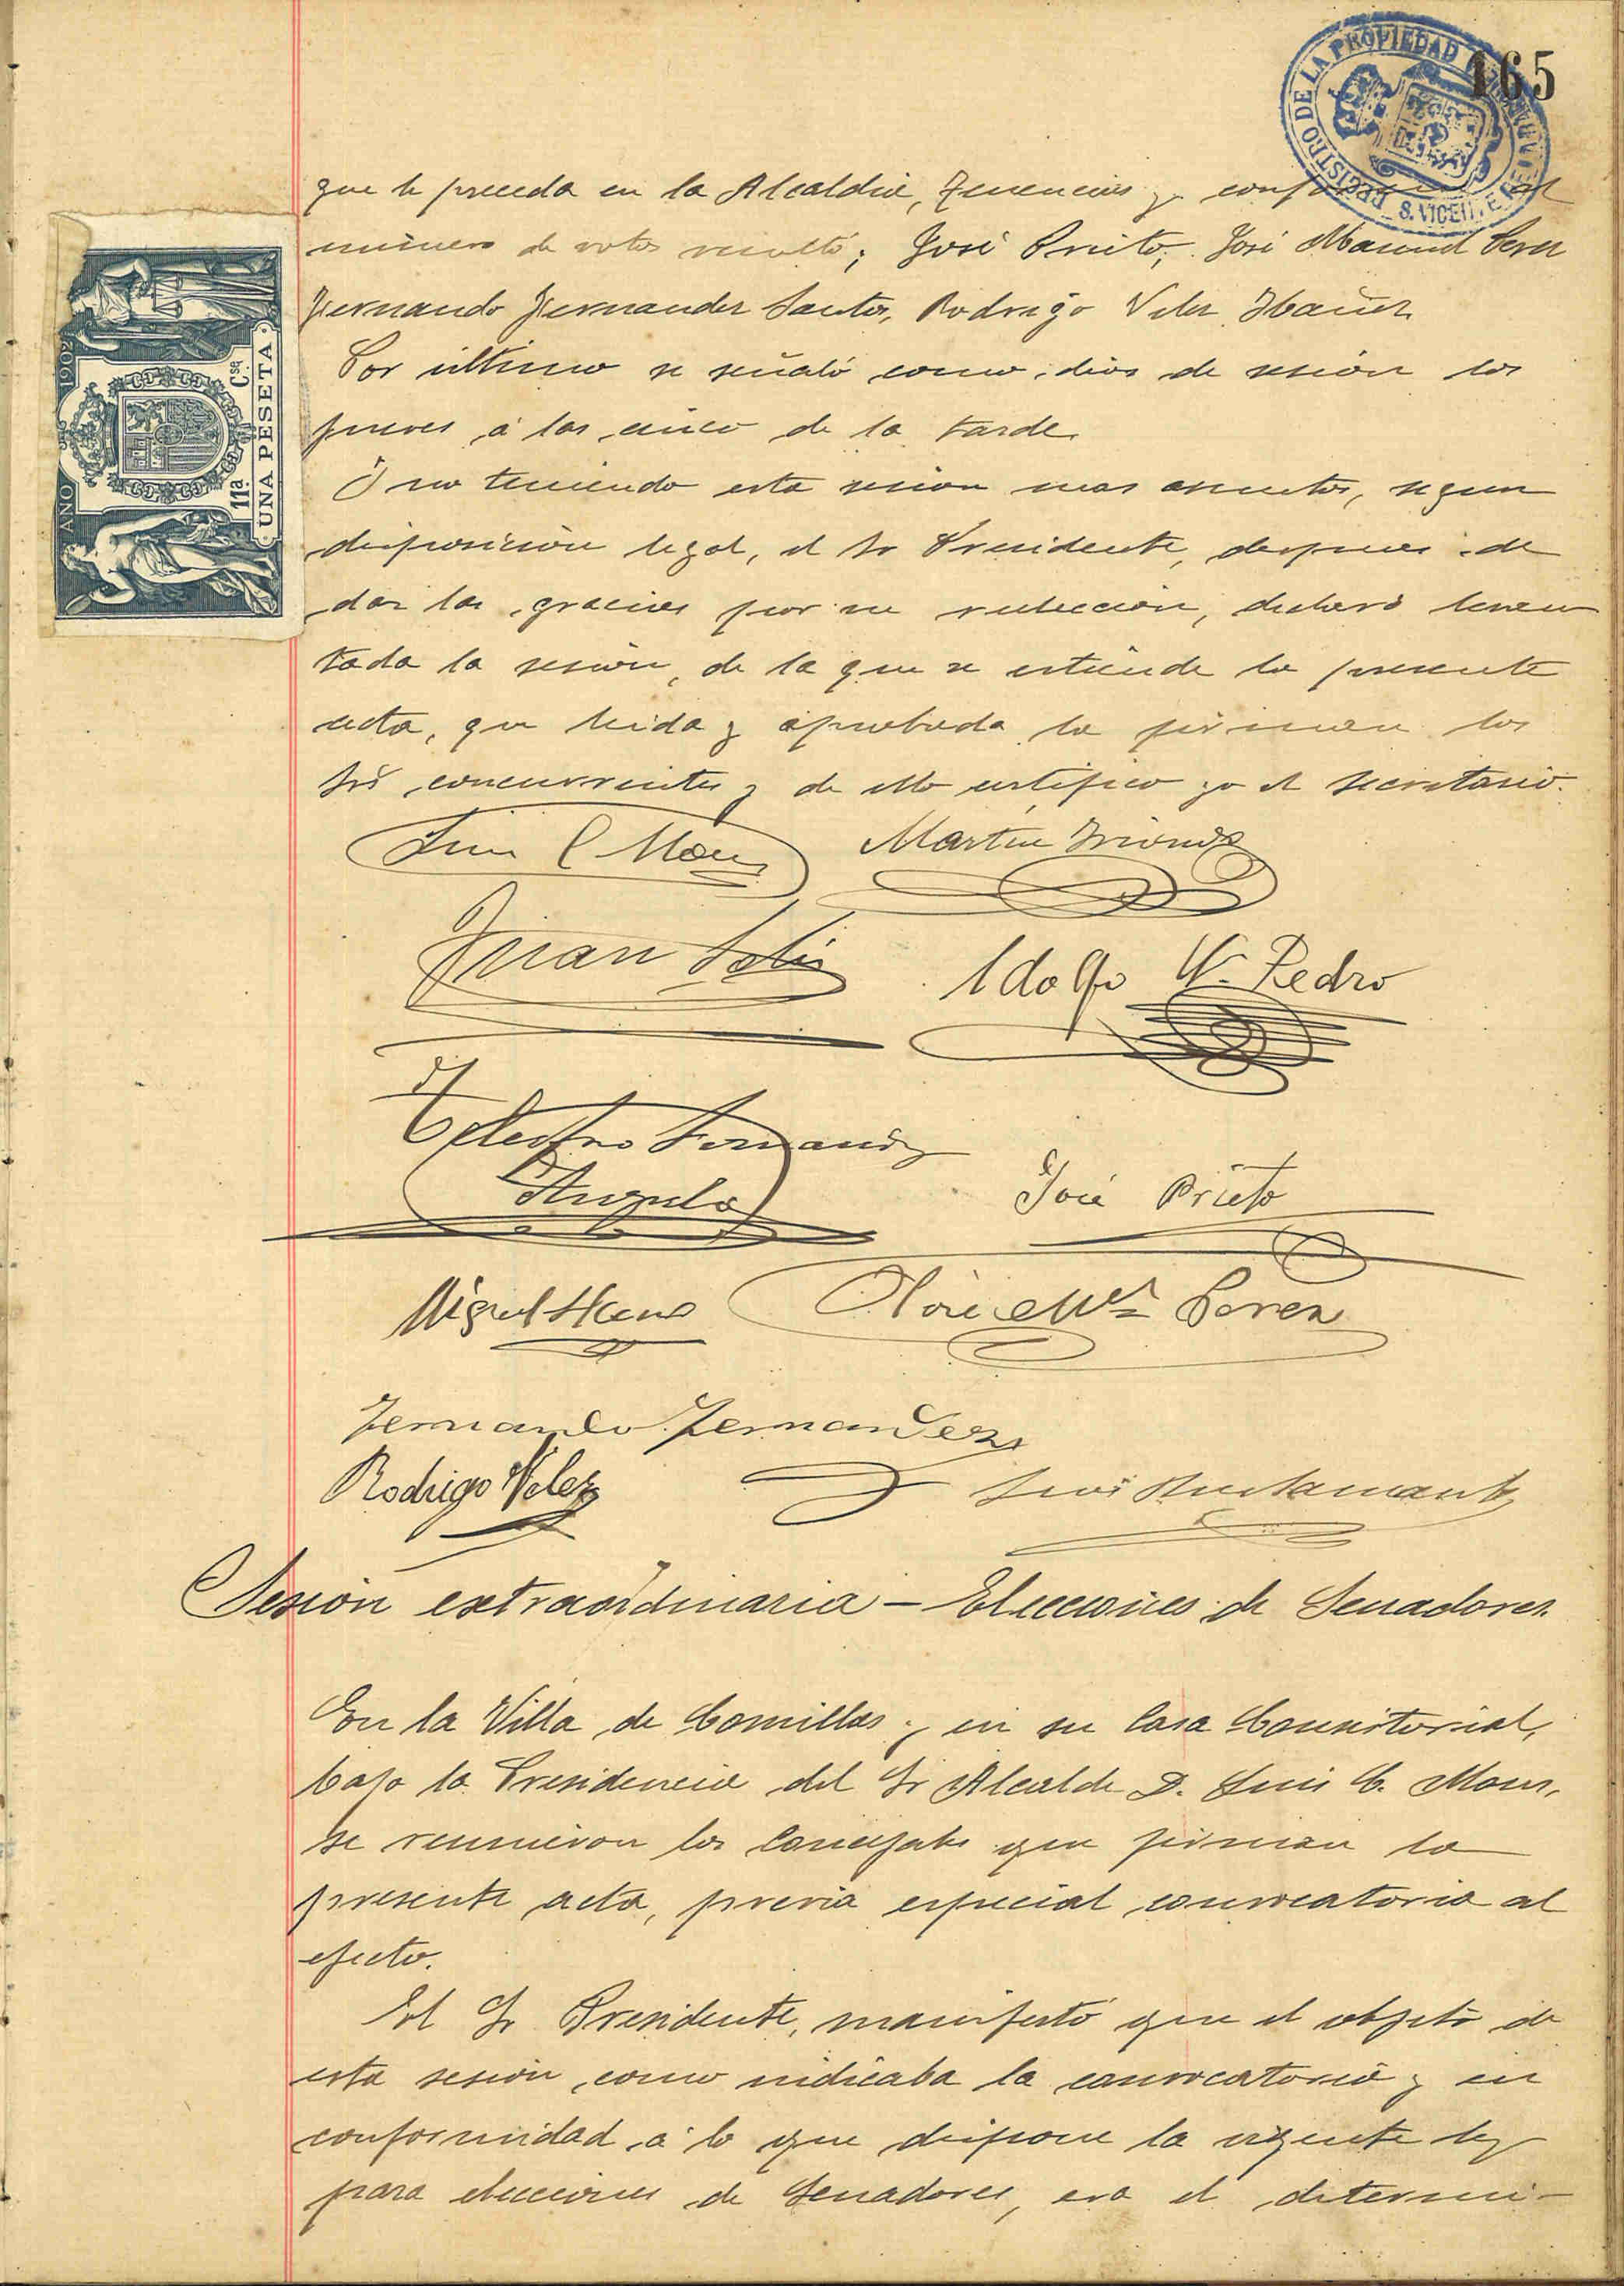 165
REGISTRO DE LA PROPIEDAD
S. VICENTE DE LA BARQUERA
que le preceda en la Alcaldia, Tenencias y al
número de votos resultó; José Prieto; José Manuel Perez
Fernando Fernandez Santos, Rodrigo Velez Ibañez.
Por último se señaló como dias de sesión los
jueves á las cinco de la tarde.
Y no teniendo esta sesion mas asuntos, segun
disposición legal, el Sr Presidente, despues de
dar las gracias por su reeleccion, declaró levan
tada la sesión, de la que se extiende la presente
acta, que leida y aprobada la firman los
Srs concurrentes y de ello certifico yo el Secretario.
AÑO 1902
11ª Cse
UNA PESETA
Luis C Mons
Martin
Juan Solis
Adolfo W. Pedro
Celestino Fernandez
Angulo
José Prieto
Miguel
José Mª Perez
Fernando Fernandez
Rodrigo Velez
Luis Bustamante
Sesión extraordinaria - Elecciones de Senadores.
En la Villa de Comillas y en su Casa Consistorial,
bajo la Presidencia del Sr Alcalde D. Luis C. Mons,
se reunieron los Concejales que firman la
presente acta, previa especial convocatoria al
efecto.
El Sr Presidente, manifestó que el objeto de
esta sesión, como indicaba la convocatoria y en
conformidad á lo que dispone la vigente ley
para elecciones de Senadores, era el determi-